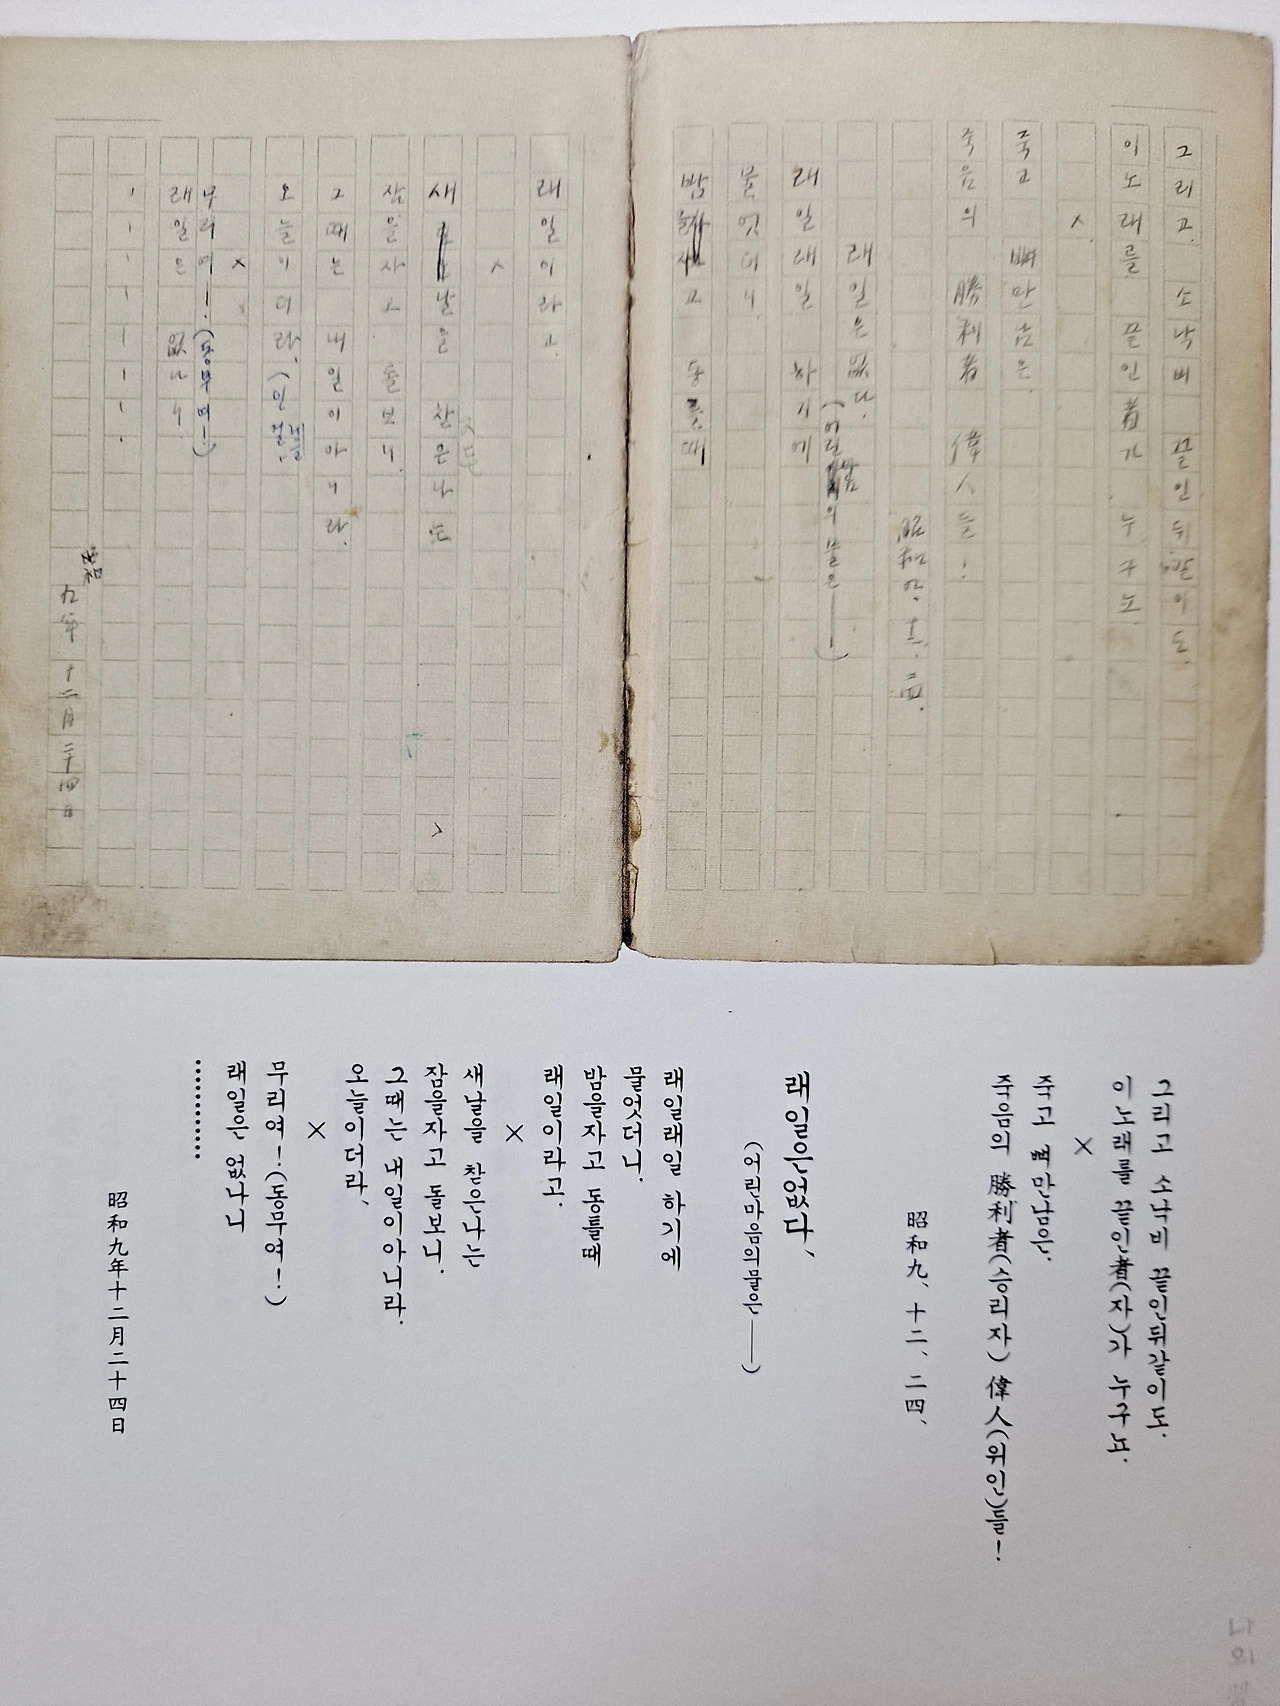 그리고 소낙비 끝인뒤같이도.
이노래를 끝인者가 누구뇨.
×
죽고 뼈만남은.
죽음의 勝利者 偉人들!
昭和九、十二、二四.
래일은없다.
(어린마음의물은——)
래일래일 하기에
물엇더니.
밤을자고 동틀때
래일이라고.
×
새날을 찾은나는
잠을자고 돌보니.
그때는 내일이아니라.
오늘이더라.
×
무리여! (동무여!)
래일은 없나니.
昭和九年 十二月二十四日
그리고 소낙비 끝인뒤같이도.
이노래를 끝인者(자)가 누구뇨.
×
죽고 뼈만남은.
죽음의 勝利者(승리자) 偉人(위인)들!
昭和九、十二、二四、
래일은없다、
(어린마음의물은——)
래일래일 하기에
물엇더니.
밤을자고 동틀때
래일이라고.
×
새날을 찾은나는
잠을자고 돌보니.
그때는 내일이아니라.
오늘이더라、
×
무리여!(동무여!)
래일은 없나니
………
昭和九年十二月二十四日